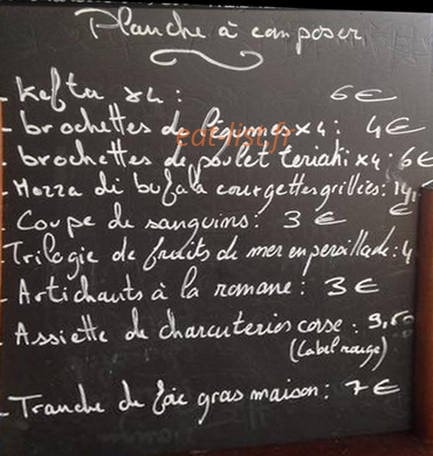 Planche à composer
- Kefta x4 : 6€
- brochettes de légumes x4 : 4€
eat-list.fr
- brochettes de poulet teriaki x4 : 6€
- Mozza di bufala courgettes grillées :
€
- Coupe de sanguins : 3 €
- Trilogie de fruits de mer en persillade : 4
- Artichauts à la romane : 3€
- Assiette de charcuteries corse :
(Label rouge)
- Tranche de foie gras maison : 7€